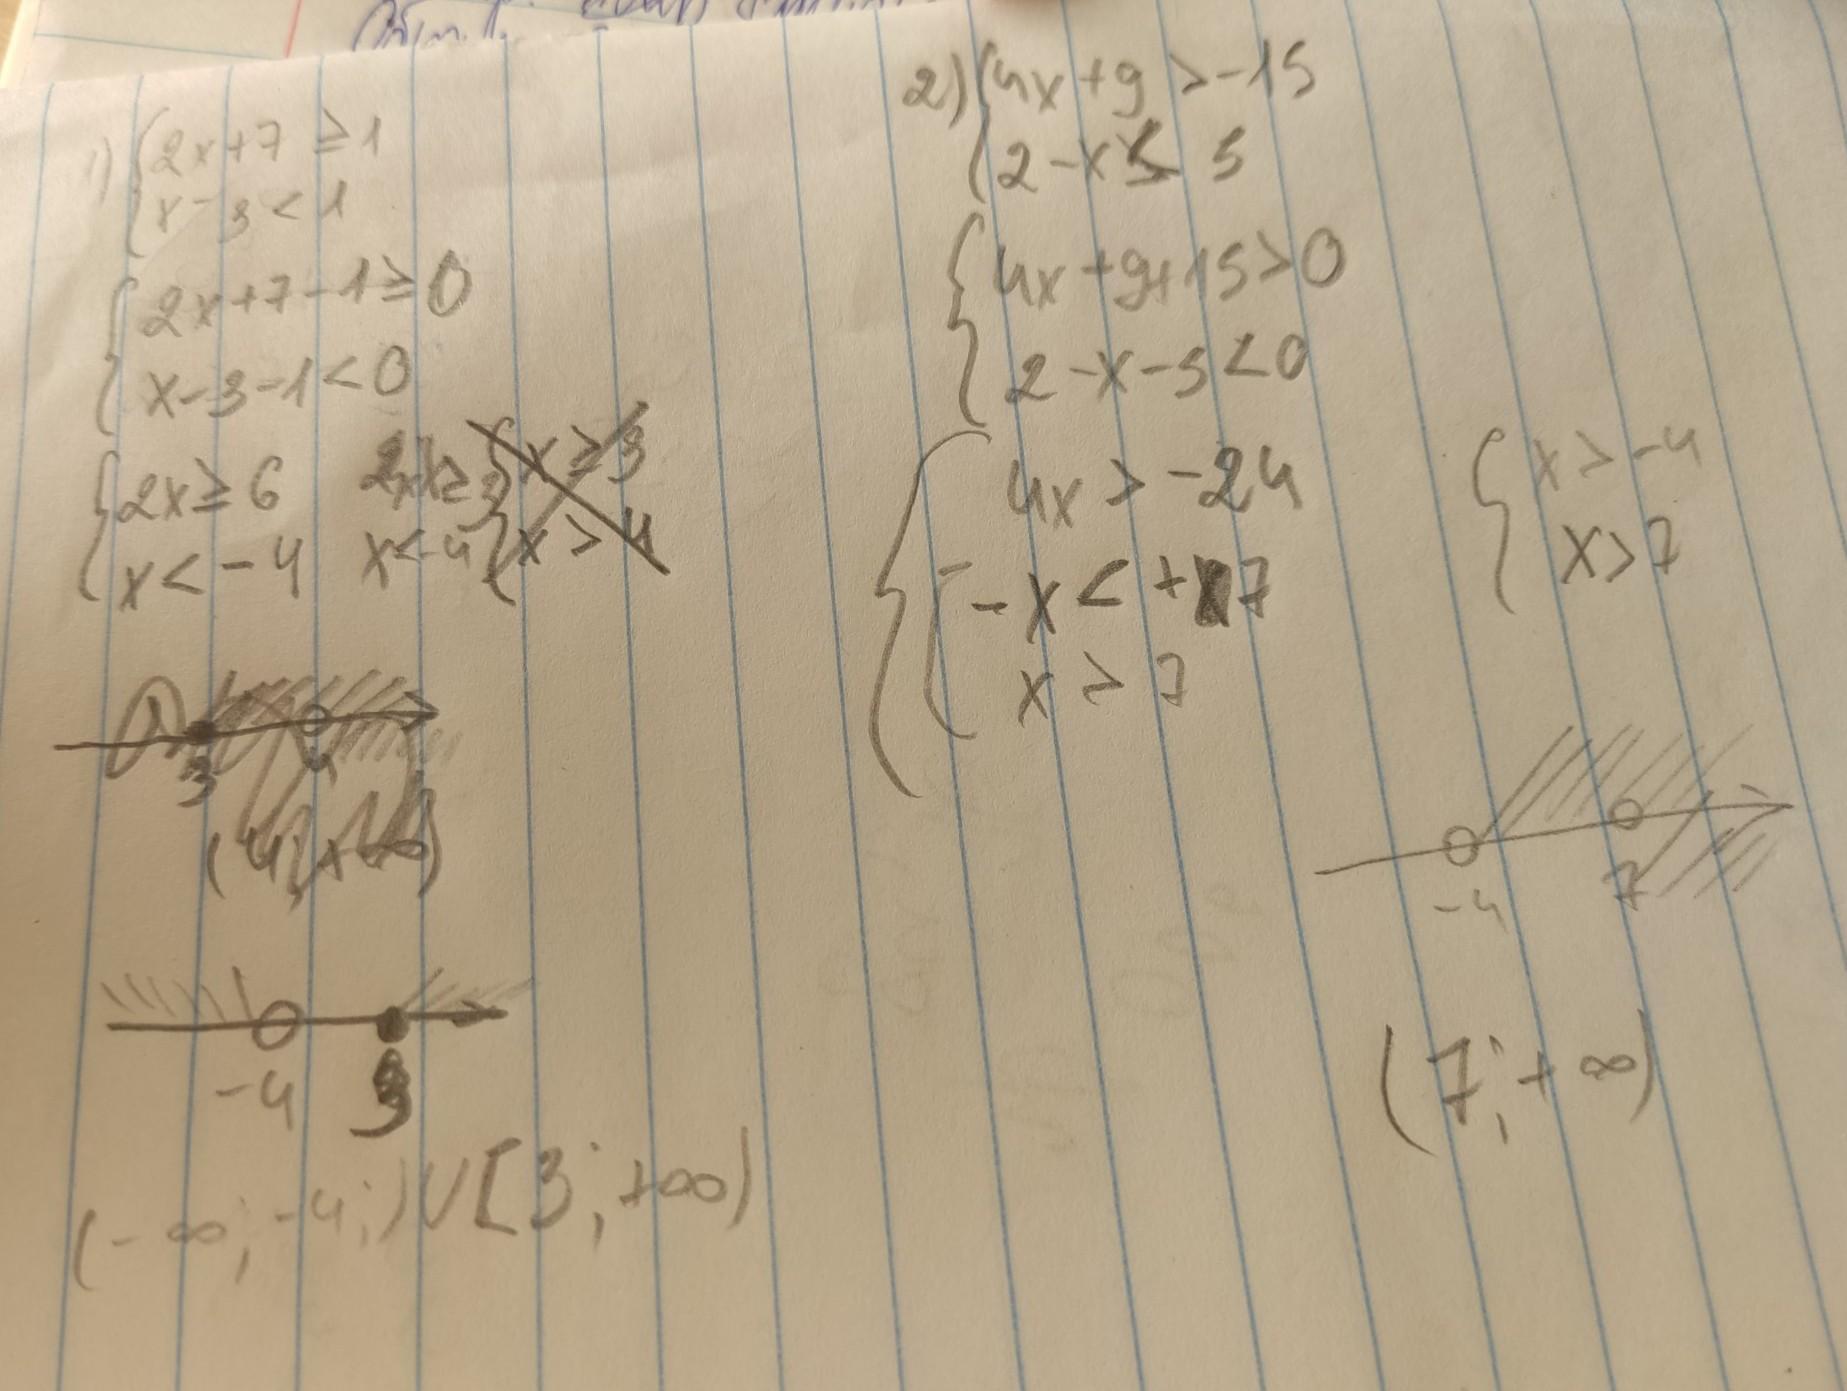 1) { 2x+7 ≥ 1
x-3 < 1
{ 2x+7-1 ≥ 0
x-3-1 < 0
{ 2x ≥ 6
x < -4
x < -4
{ x ≥ 3
x > 4
3
4
(4; +∞)
-4 3
(-∞; -4;) ∪ [3; +∞)
2) { 4x+9 > -15
2-x ≤ 5
{ 4x+9+15 > 0
2-x-5 < 0
{ 4x > -24
{ -x < +7
x > 7
{ x > -4
x > 7
-4 7
(7; +∞)